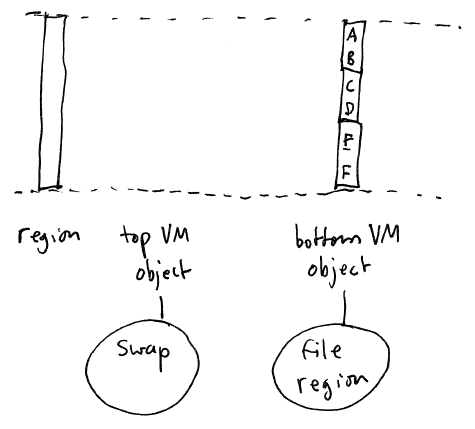 A
B
C
D
E
F
region
top VM
object
bottom VM
object
Swap
File
region